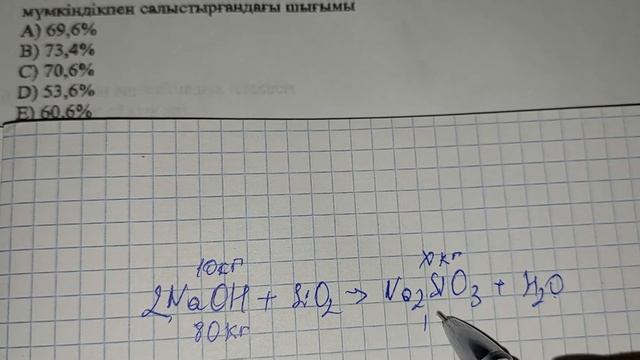 мүмкіндікпен салыстырғандағы шығымы
A) 69,6%
B) 73,4%
C) 70,6%
D) 53,6%
E) 60,6%
10кг xкг
2NaOH + SiO2 → Na2SiO3 + H2O
80кг 1